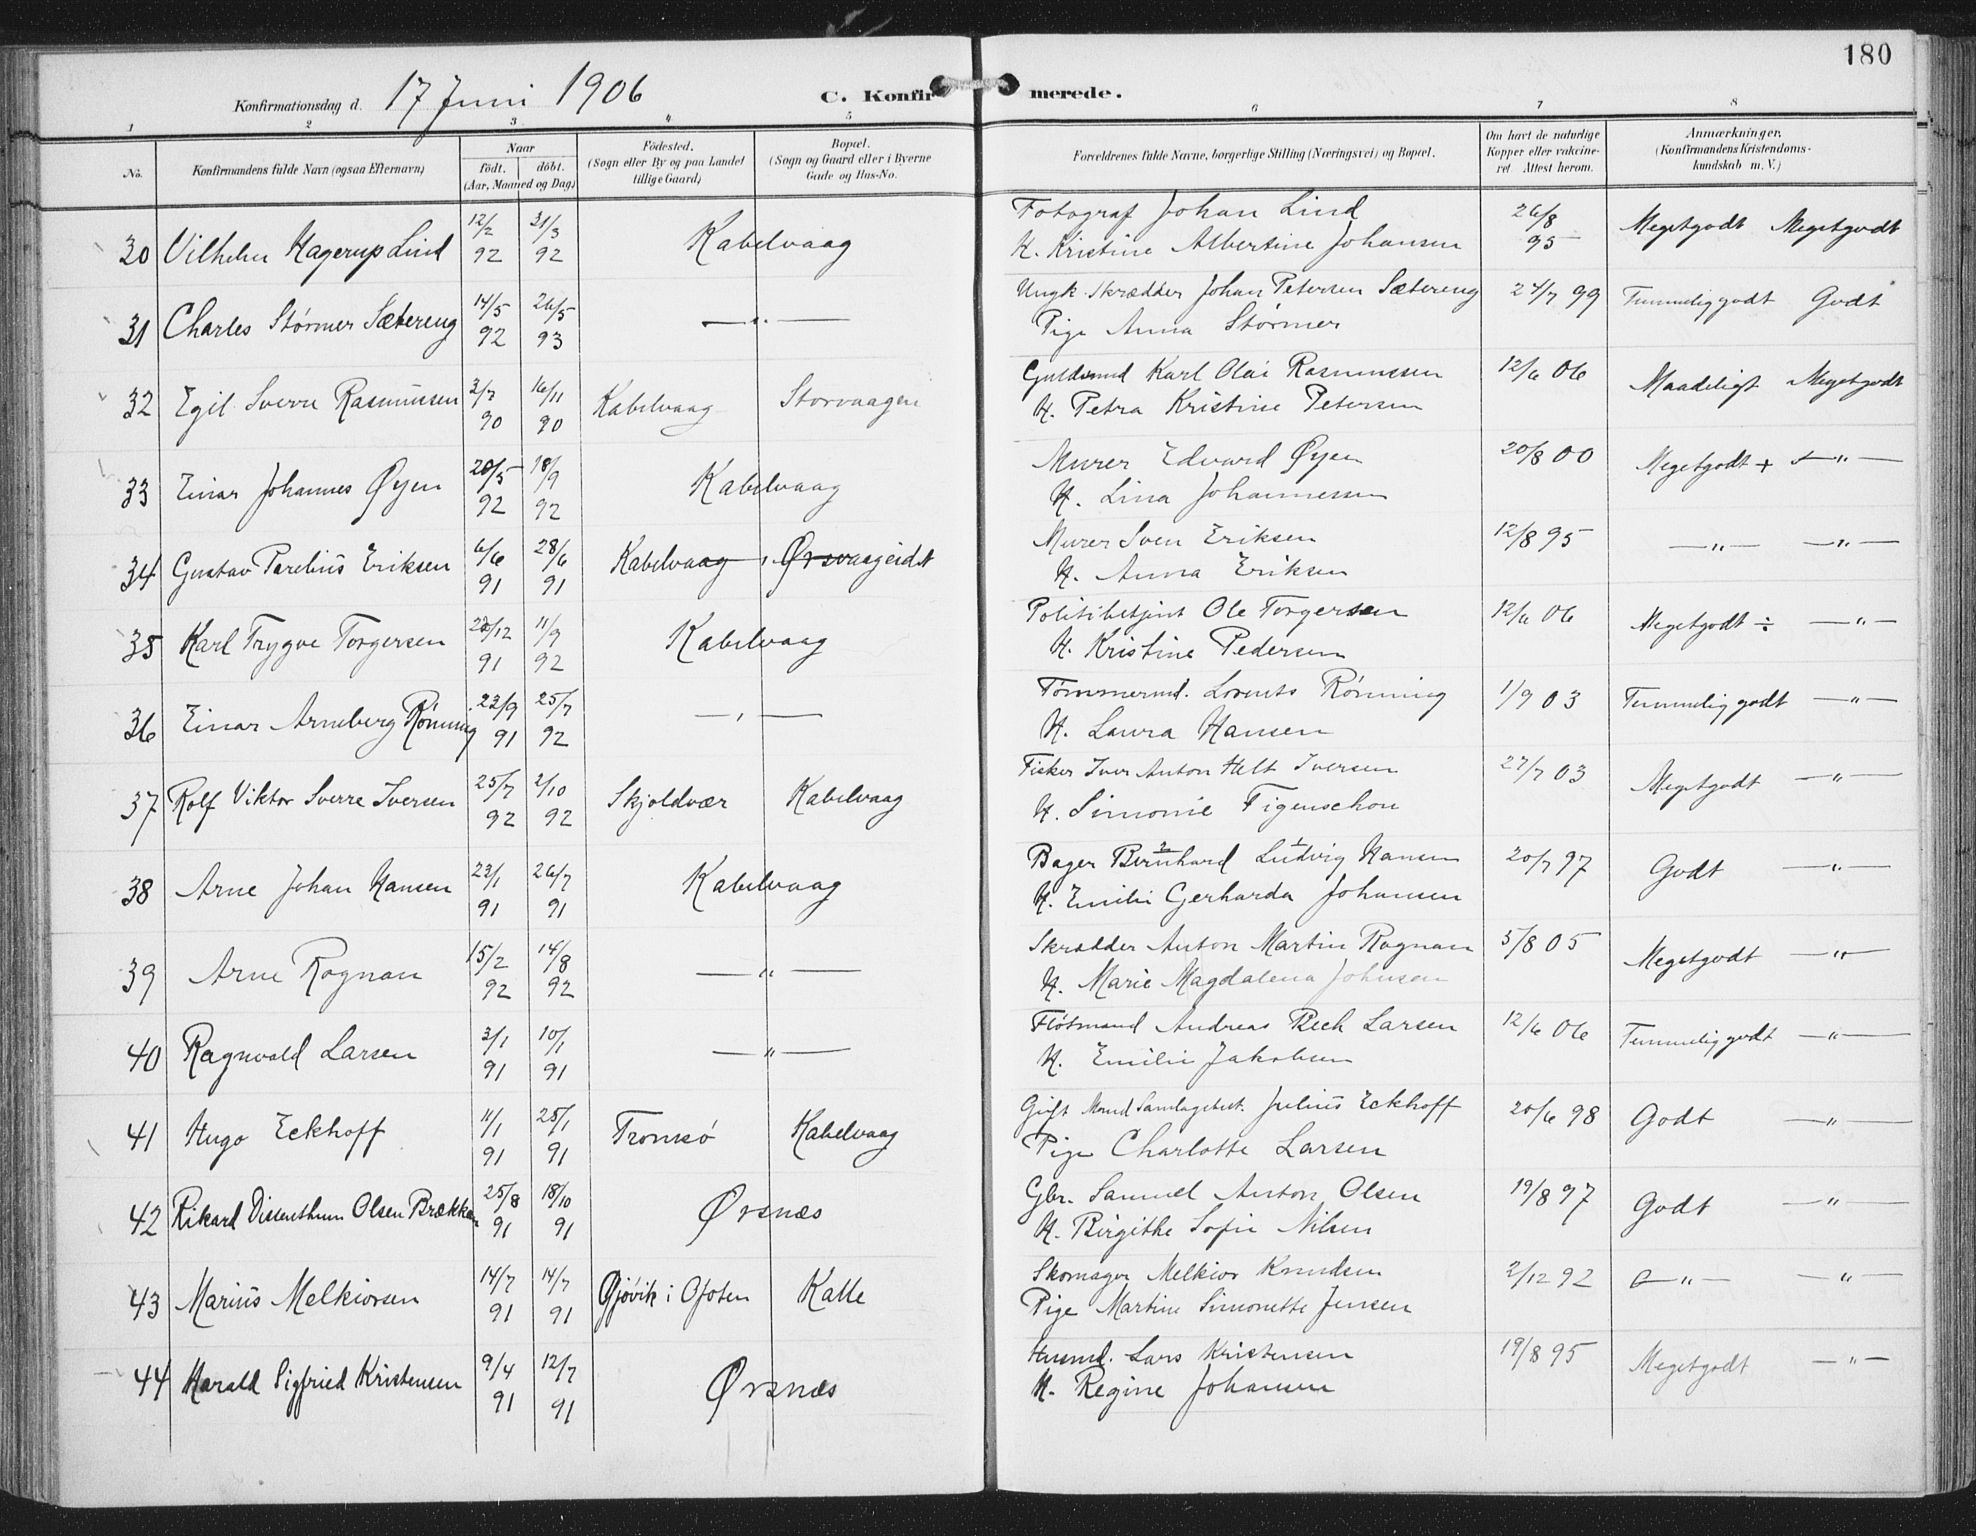 180
Konfirmationsdag d. 17 Juni 1906 C. Konfirmerede.
1 2 3 4 5 6 7 8
No. Konfirmandens fulde Navn (ogsaa Efternavn) Naar födt. döbt. (Aar, Maaned og Dag) Födested. (Sogn eller By og paa Landet tillige Gaard) Bopæl. (Sogn og Gaard eller i Byerne Gade og Hus-No. Forældrenes fulde Navne, borgerlige Stilling (Næringsvei) og Bopæl. Om havt de naturlige Kopper eller vakcineret. Attest herom. Anmærkninger. (Konfirmandens Kristendomskundskab m. V.)
30 Vilhelm Hagerup Lind 12/2 92 31/3 92 Kabelvaag Fotograf Johan Lind 26/8 95 Megetgodt Megetgodt
H. Kristine Albertine Johansen
31 Charles Störmer Sætereng 14/5 92 26/5 93 —"— Ungk. Skrædder Johan Petersen Sætereng 27/7 99 Temmelig godt Godt
Pige Anna Störmer
32 Egil Sverre Rasmussen 3/7 90 16/11 90 Kabelvaag Storvaagen Karl Olai Rasmussen 12/6 06 Maadeligt Megetgodt
H. Petra Kristine Petersen
33 Einar Johannes Øyen 20/5 92 18/9 92 Kabelvaag Murer Edvard Øyen 20/8 00 Megetgodt + —"—
H. Lina Johannessen
34 Gustav Parelius Eriksen 6/6 91 28/6 91 Kabelvaag, Ørsvaageidet Murer Sven Eriksen 12/8 95 —"— —"—
H. Anna Eriksen
35 Karl Trygve Torgersen 28/12 91 11/9 92 Kabelvaag Politibetjent Ole Torgersen 12/6 06 Megetgodt ÷ —"—
H. Kristine Pedersen
36 Einar Arneberg Rönning 23/9 91 25/7 92 —"— Tömmermd. Lorents Rönning 1/9 03 Temmelig godt —"—
H. Laura Hansen
37 Rolf Viktor Sverre Iversen 25/7 92 2/10 92 Skjoldvær Kabelvaag Fisker Iver Anton Helt Iversen 27/7 03 Megetgodt —"—
H. Simonie Figenschou
38 Arne Johan Hansen 23/1 91 26/7 91 Kabelvaag Bager Bernhard Ludvig Hansen 20/7 97 Godt —"—
H. Emilie Gerharda Johansen
39 Arne Rognan 15/2 92 14/8 92 —"— Skrædder Anton Martin Rognan 5/8 05 Megetgodt —"—
H. Marie Magdalena Johnsen
40 Ragnvald Larsen 3/1 91 10/1 91 —"— Flötmand Andreas Rech Larsen 12/6 06 Temmelig godt —"—
H. Emilie Jakobsen
41 Hugo Eckhoff 11/1 91 25/1 91 Tromsö Kabelvaag Gift Mand Samlagsbest. Julius Eckhoff 20/6 98 Godt —"—
Pige Charlotte Larsen
42 Rikard Distenthum Olsen Brækkan 25/8 91 18/10 91 Ørsnæs Gbr. Samuel Anton Olsen 19/8 97 Godt —"—
H. Birgithe Sofie Nilsen
43 Marius Melkiorsen 14/7 91 14/7 91 Gjövik i Ofoten Kalle Skomager Melkior Knudsen 2/12 92 —"— —"—
Pige Martine Simonette Jensen
44 Harald Sigfried Kristensen 9/4 91 12/7 91 Ørsnæs Husmd. Lars Kristensen 19/8 95 Megetgodt —"—
H. Regine Johansen